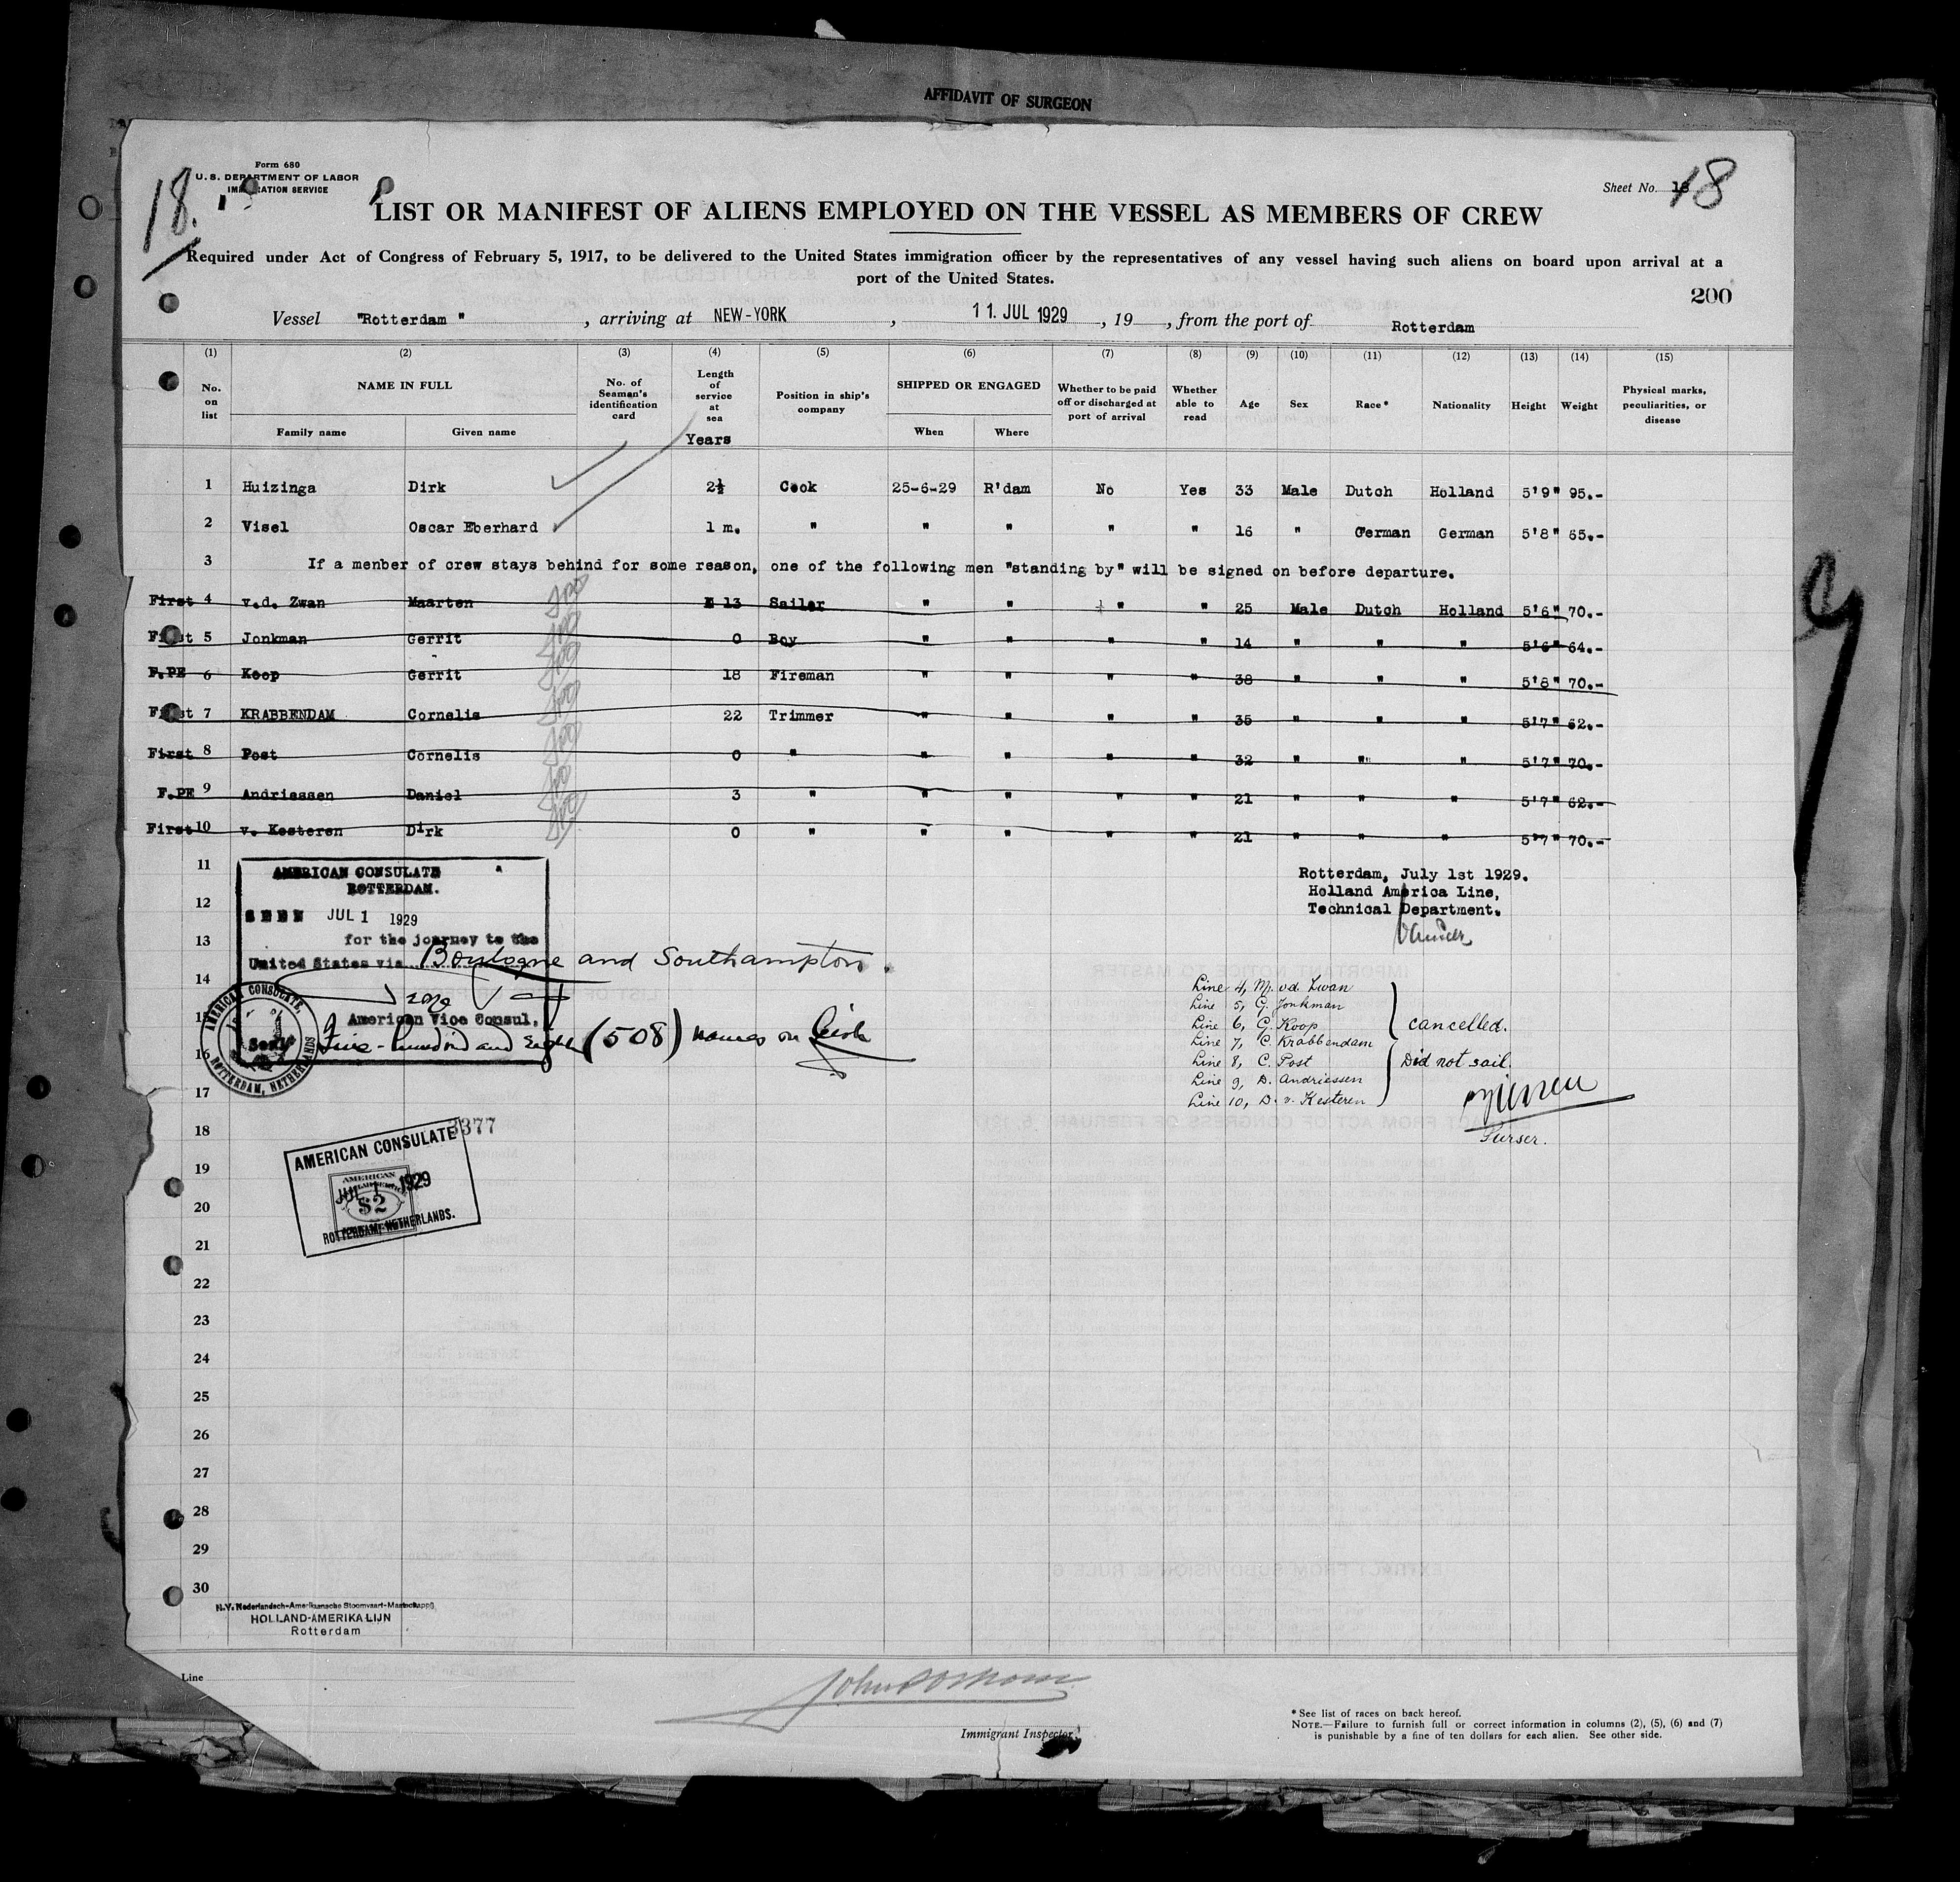 AFFIDAVIT OF SURGEON
Form 680
U. S. DEPARTMENT OF LABOR
IMMIGRATION SERVICE
18.
Sheet No. 18
18
LIST OR MANIFEST OF ALIENS EMPLOYED ON THE VESSEL AS MEMBERS OF CREW
Required under Act of Congress of February 5, 1917, to be delivered to the United States immigration officer by the representatives of any vessel having such aliens on board upon arrival at a
port of the United States.
200
Vessel "Rotterdam", arriving at NEW-YORK, 11. JUL 1929, 19 , from the port of Rotterdam
(1) (2) (3) (4) (5) (6) (7) (8) (9) (10) (11) (12) (13) (14) (15)
No. on list NAME IN FULL Family name Given name No. of Seaman's identification card Length of service at sea Years Position in ship's company SHIPPED OR ENGAGED When Where Whether to be paid off or discharged at port of arrival Whether able to read Age Sex Race* Nationality Height Weight Physical marks, peculiarities, or disease
1 Huizinga Dirk 2½ Cook 25-6-29 R'dam No Yes 33 Male Dutch Holland 5'9" 95.-
2 Visel Oscar Eberhard 1 m. " " " " " 16 " German German 5'8" 65.-
3 If a menber of crew stays behind for some reason, one of the following men "standing by" will be signed on before departure.
First 4 v.d. Zwan Maarten 13 Sailor " " " " 25 Male Dutch Holland 5'6" 70.-
First 5 Jonkman Gerrit 0 Boy " " " " 14 " " " 5'6" 64.-
F.PE 6 Koop Gerrit 18 Fireman " " " " 38 " " " 5'8" 70.-
First 7 KRABBENDAM Cornelis 22 Trimmer " " " " 35 " " " 5'7" 62.-
First 8 Post Cornelis 0 " " " " " 32 " " " 5'7" 70.-
F.PE 9 Andriessen Daniel 3 " " " " " 21 " " " 5'7" 62.-
First 10 v. Kesteren Dirk 0 " " " " " 21 " " " 5'7" 70.-
11
12
13
14
15
16
17
18
19
20
21
22
23
24
25
26
27
28
29
30
AMERICAN CONSULATE
ROTTERDAM.
SEEN JUL 1 1929
for the journey to the
United States via Boulogne and Southampton.
American Vice Consul,
Five-hundred and eight (508) names on
AMERICAN CONSULATE, ROTTERDAM, NETHERLANDS
Seal
Rotterdam, July 1st 1929.
Holland America Line,
Technical Department.
Line 4, M. vd. Zwan
Line 5, G. Jonkman
Line 6, G. Koop
Line 7, C. Krabbendam
Line 8, C. Post
Line 9, D. Andriessen
Line 10, D. v. Kesteren
cancelled.
Did not sail.
Purser.
3377
AMERICAN CONSULATE
AMERICAN
JUL 1 1929
$2
ROTTERDAM, NETHERLANDS.
N.V. Nederlandsch-Amerikaansche Stoomvaart-Maatschappij
HOLLAND-AMERIKA LIJN
Rotterdam
Line
Immigrant Inspector.
* See list of races on back hereof.
NOTE.—Failure to furnish full or correct information in columns (2), (5), (6) and (7)
is punishable by a fine of ten dollars for each alien. See other side.